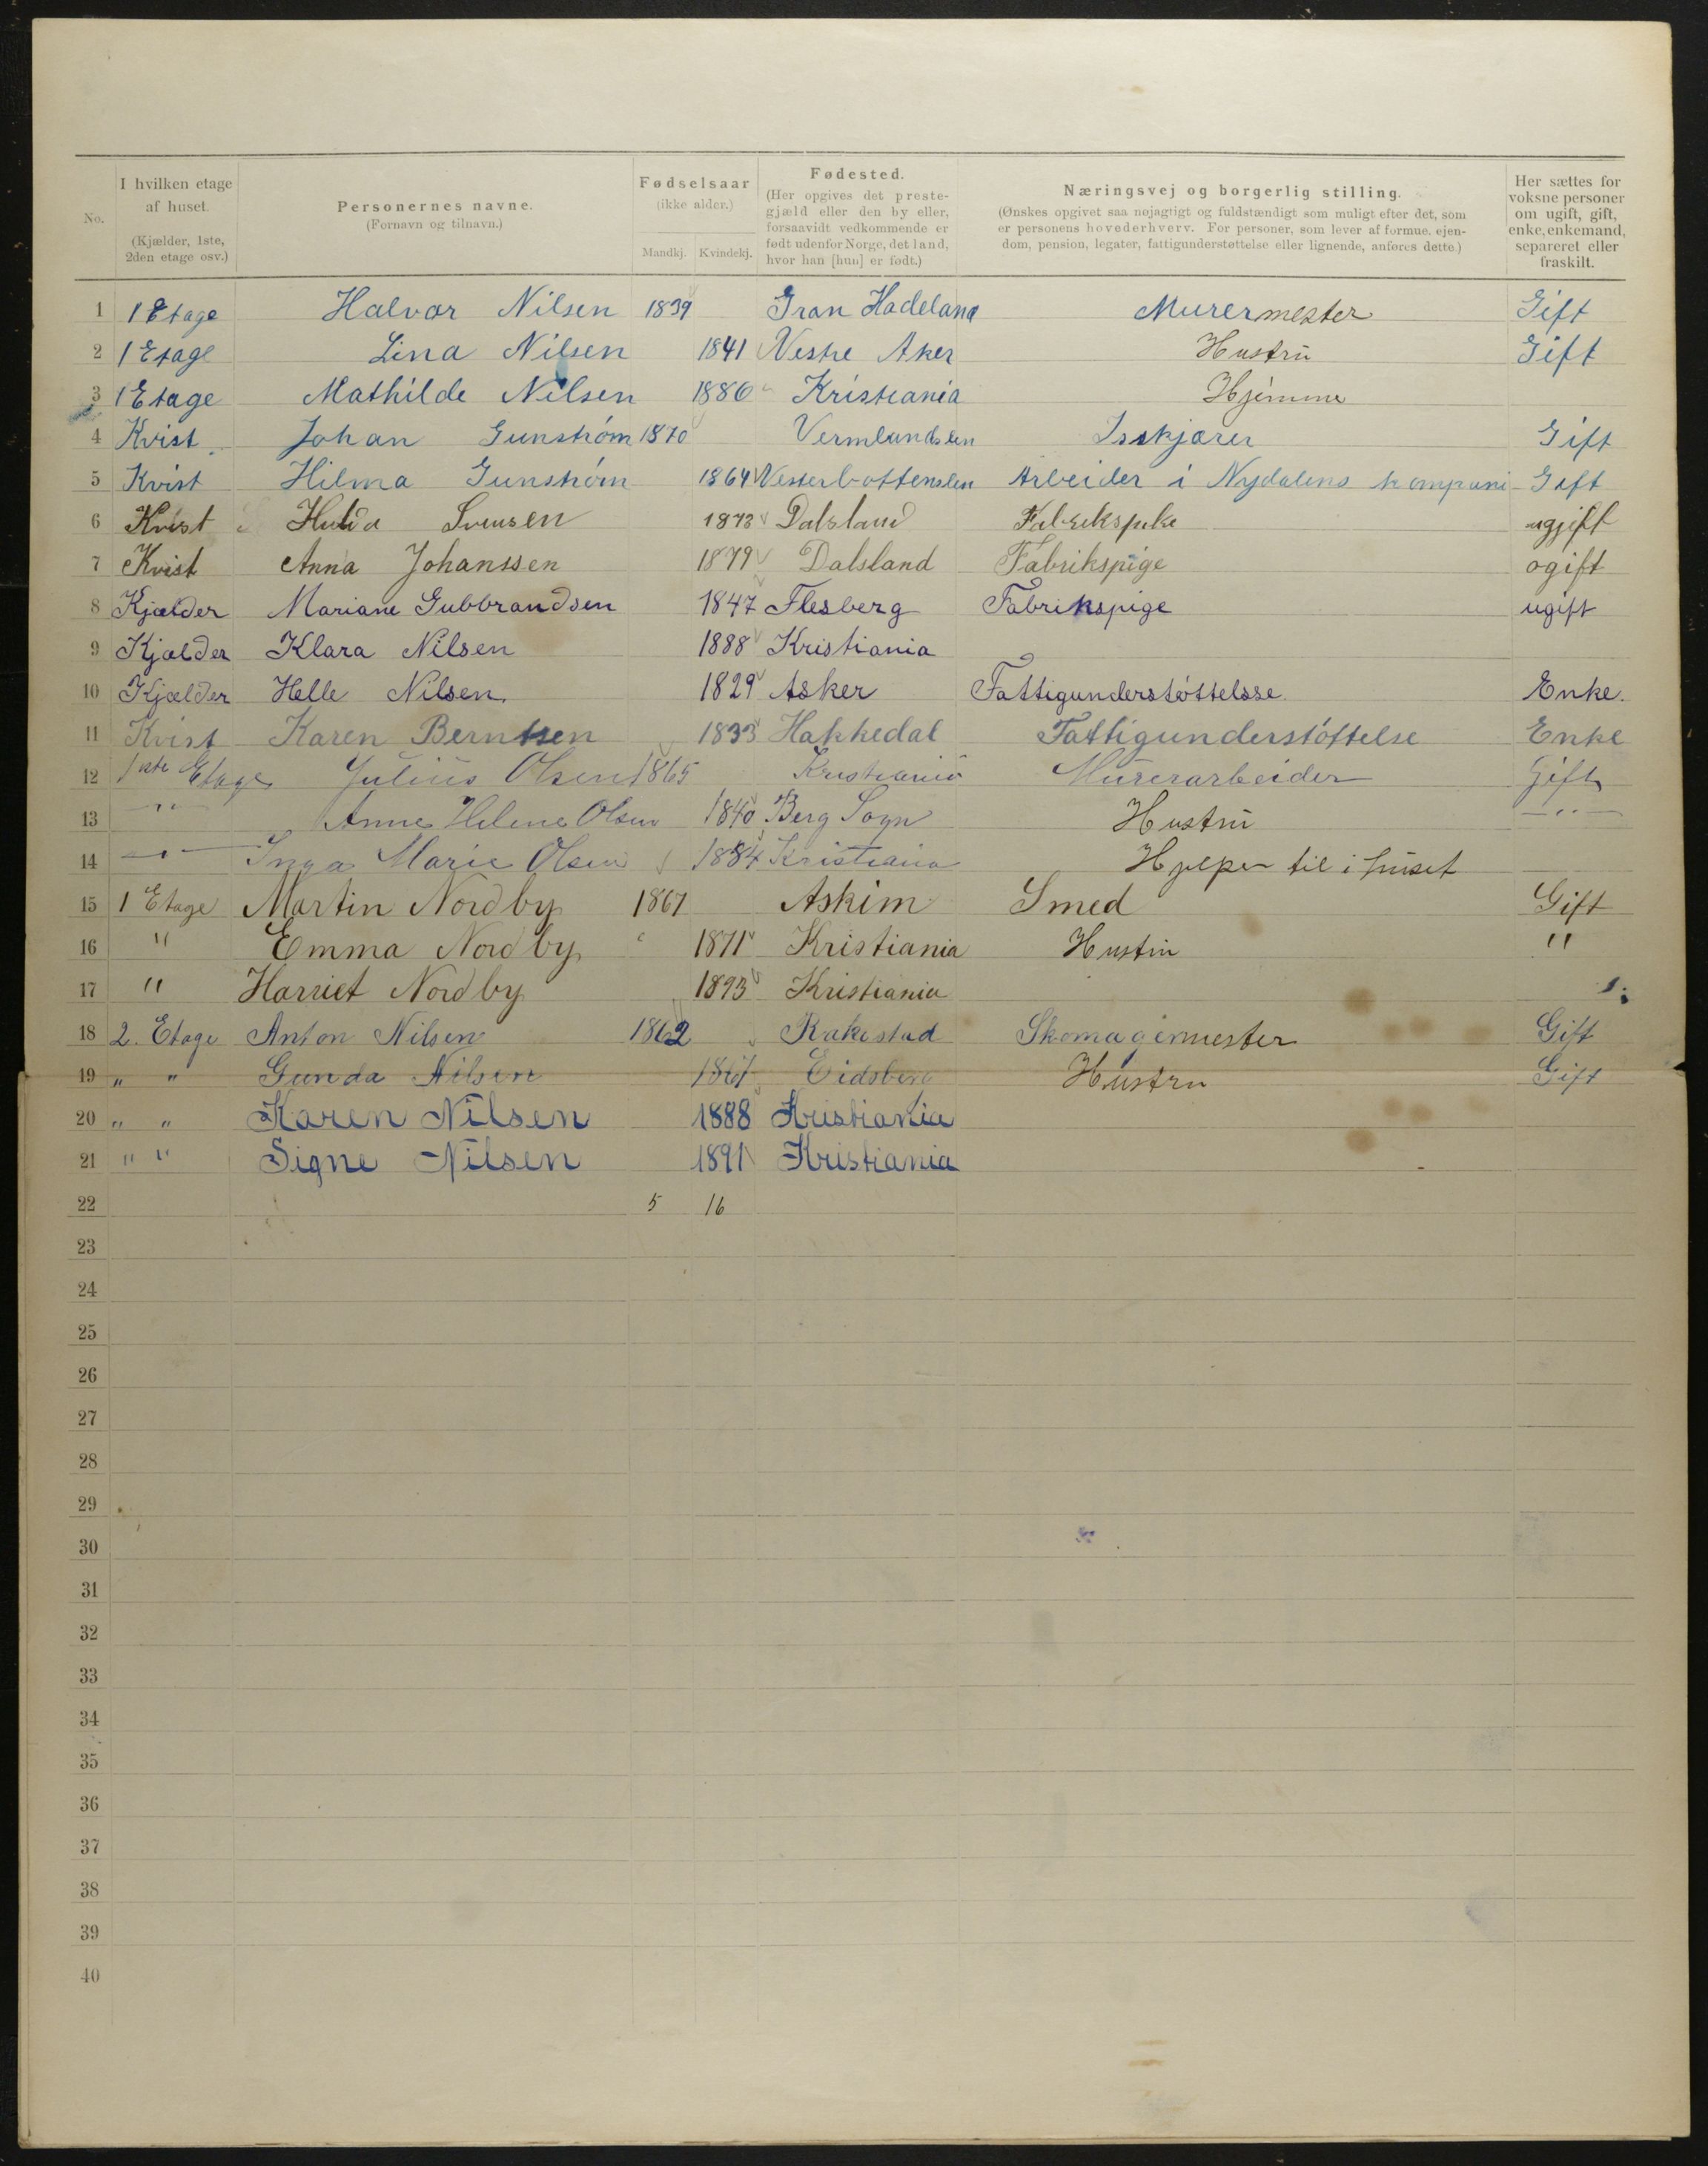 No.
I hvilken etage af huset. (Kjælder, 1ste, 2den etage osv.)
Personernes navne. (Fornavn og tilnavn.)
Fødselsaar (ikke alder.) Mandkj. Kvindekj.
Fødested. (Her opgives det prestegjæld eller den by eller, forsaavidt vedkommende er født udenfor Norge, det land, hvor han [hun] er født.)
Næringsvej og borgerlig stilling. (Ønskes opgivet saa nøjagtigt og fuldstændigt som muligt efter det, som er personens hovederhverv. For personer, som lever af formue, ejendom, pension, legater, fattigunderstøttelse eller lignende, anføres dette.)
Her sættes for voksne personer om ugift, gift, enke, enkemand, separeret eller fraskilt.
1 1 Etage Halvor Nilsen 1839 Gran Hadeland Murermester Gift
2 1 Etage Lina Nilsen 1841 Vestre Aker Hustru Gift
3 1 Etage Mathilde Nilsen 1886 Kristiania Hjemme
4 Kvist Johan Gunström 1870 Vermlandslen Isskjærer Gift
5 Kvist Hilma Gunström 1864 Vesterbottenslen Arbeider i Nydalens kompani Gift
6 Kvist Hulda Svensen 1873 Dalsland Fabrikspike ugjift
7 Kvist Anna Johanssen 1879 Dalsland Fabrikspige ogift
8 Kjælder Mariane Gubbrandsen 1847 Flesberg Fabrikspige ugift
9 Kjælder Klara Nilsen 1888 Kristiania
10 Kjælder Helle Nilsen. 1829 Asker Fattigunderstøttelsse Enke.
11 Kvist Karen Berntsen 1833 Hakkedal Fattigunderstøttelse Enke
12 1ste Etage Julius Olsen 1865 Kristiania Murerarbeider Gift
13 " Anne Helene Olsen 1840 Berg Sogn Hustru "
14 " Inga Marie Olsen 1884 Kristiania Hjelper til i huset
15 1 Etage Martin Nordby 1867 Askim Smed Gift
16 " Emma Nordby 1871 Kristiania Hustru "
17 " Harriet Nordby 1893 Kristiania
18 2. Etage Anton Nilsen 1862 Rakestad Skomagermester Gift
19 " " Gunda Nilsen 1867 Eidsberg Hustru Gift
20 " " Karen Nilsen 1888 Kristiania
21 " " Signe Nilsen 1891 Kristiania
22 5 16
23
24
25
26
27
28
29
30
31
32
33
34
35
36
37
38
39
40